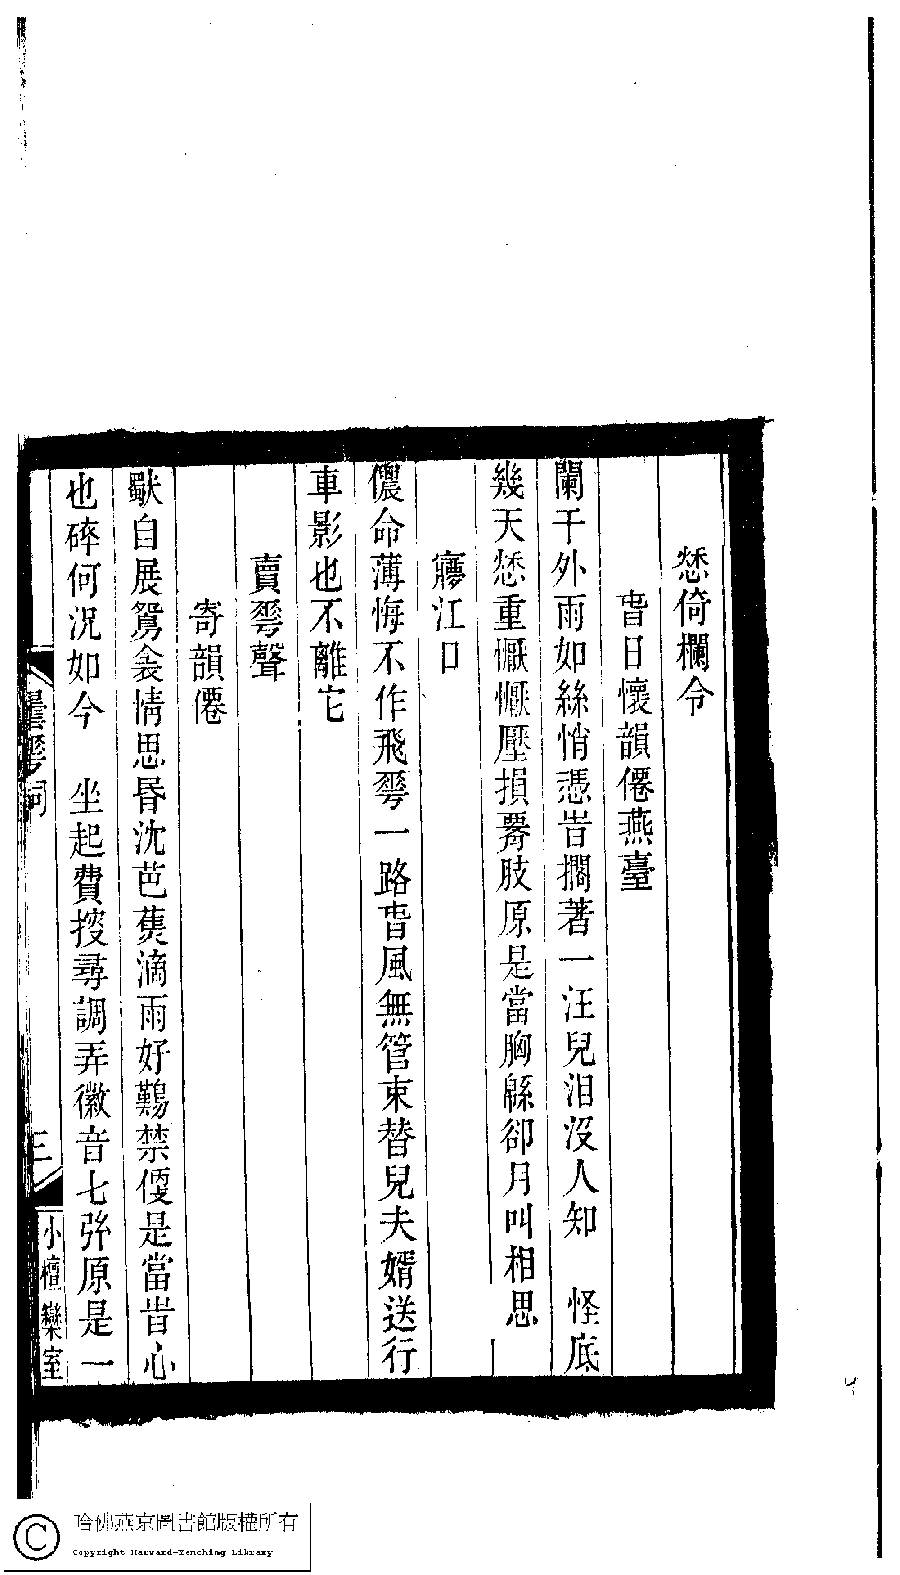 愁倚欄令
旾日懷韻僊燕臺
闌干外雨如絲悄憑旹擱著一汪兒泪沒人知　怪底
幾天愁重懨懨壓損脣肢原是當胸緜卻月叫相思
㝱江口
儂命薄悔不作飛䔢一路旾風無管束替兒夫婿送行
車影也不離它
賣䔢聲
寄韻僊
獃自展鴛衾情思昏沈芭蕉滴雨好難禁便是當旹心
也碎何況如今　坐起費挍尋調弄徽音七弦原是一
曇䔢詞
三
小檀欒室
哈佛燕京圖書館版權所有
Copyright Harvard-Yenching Library